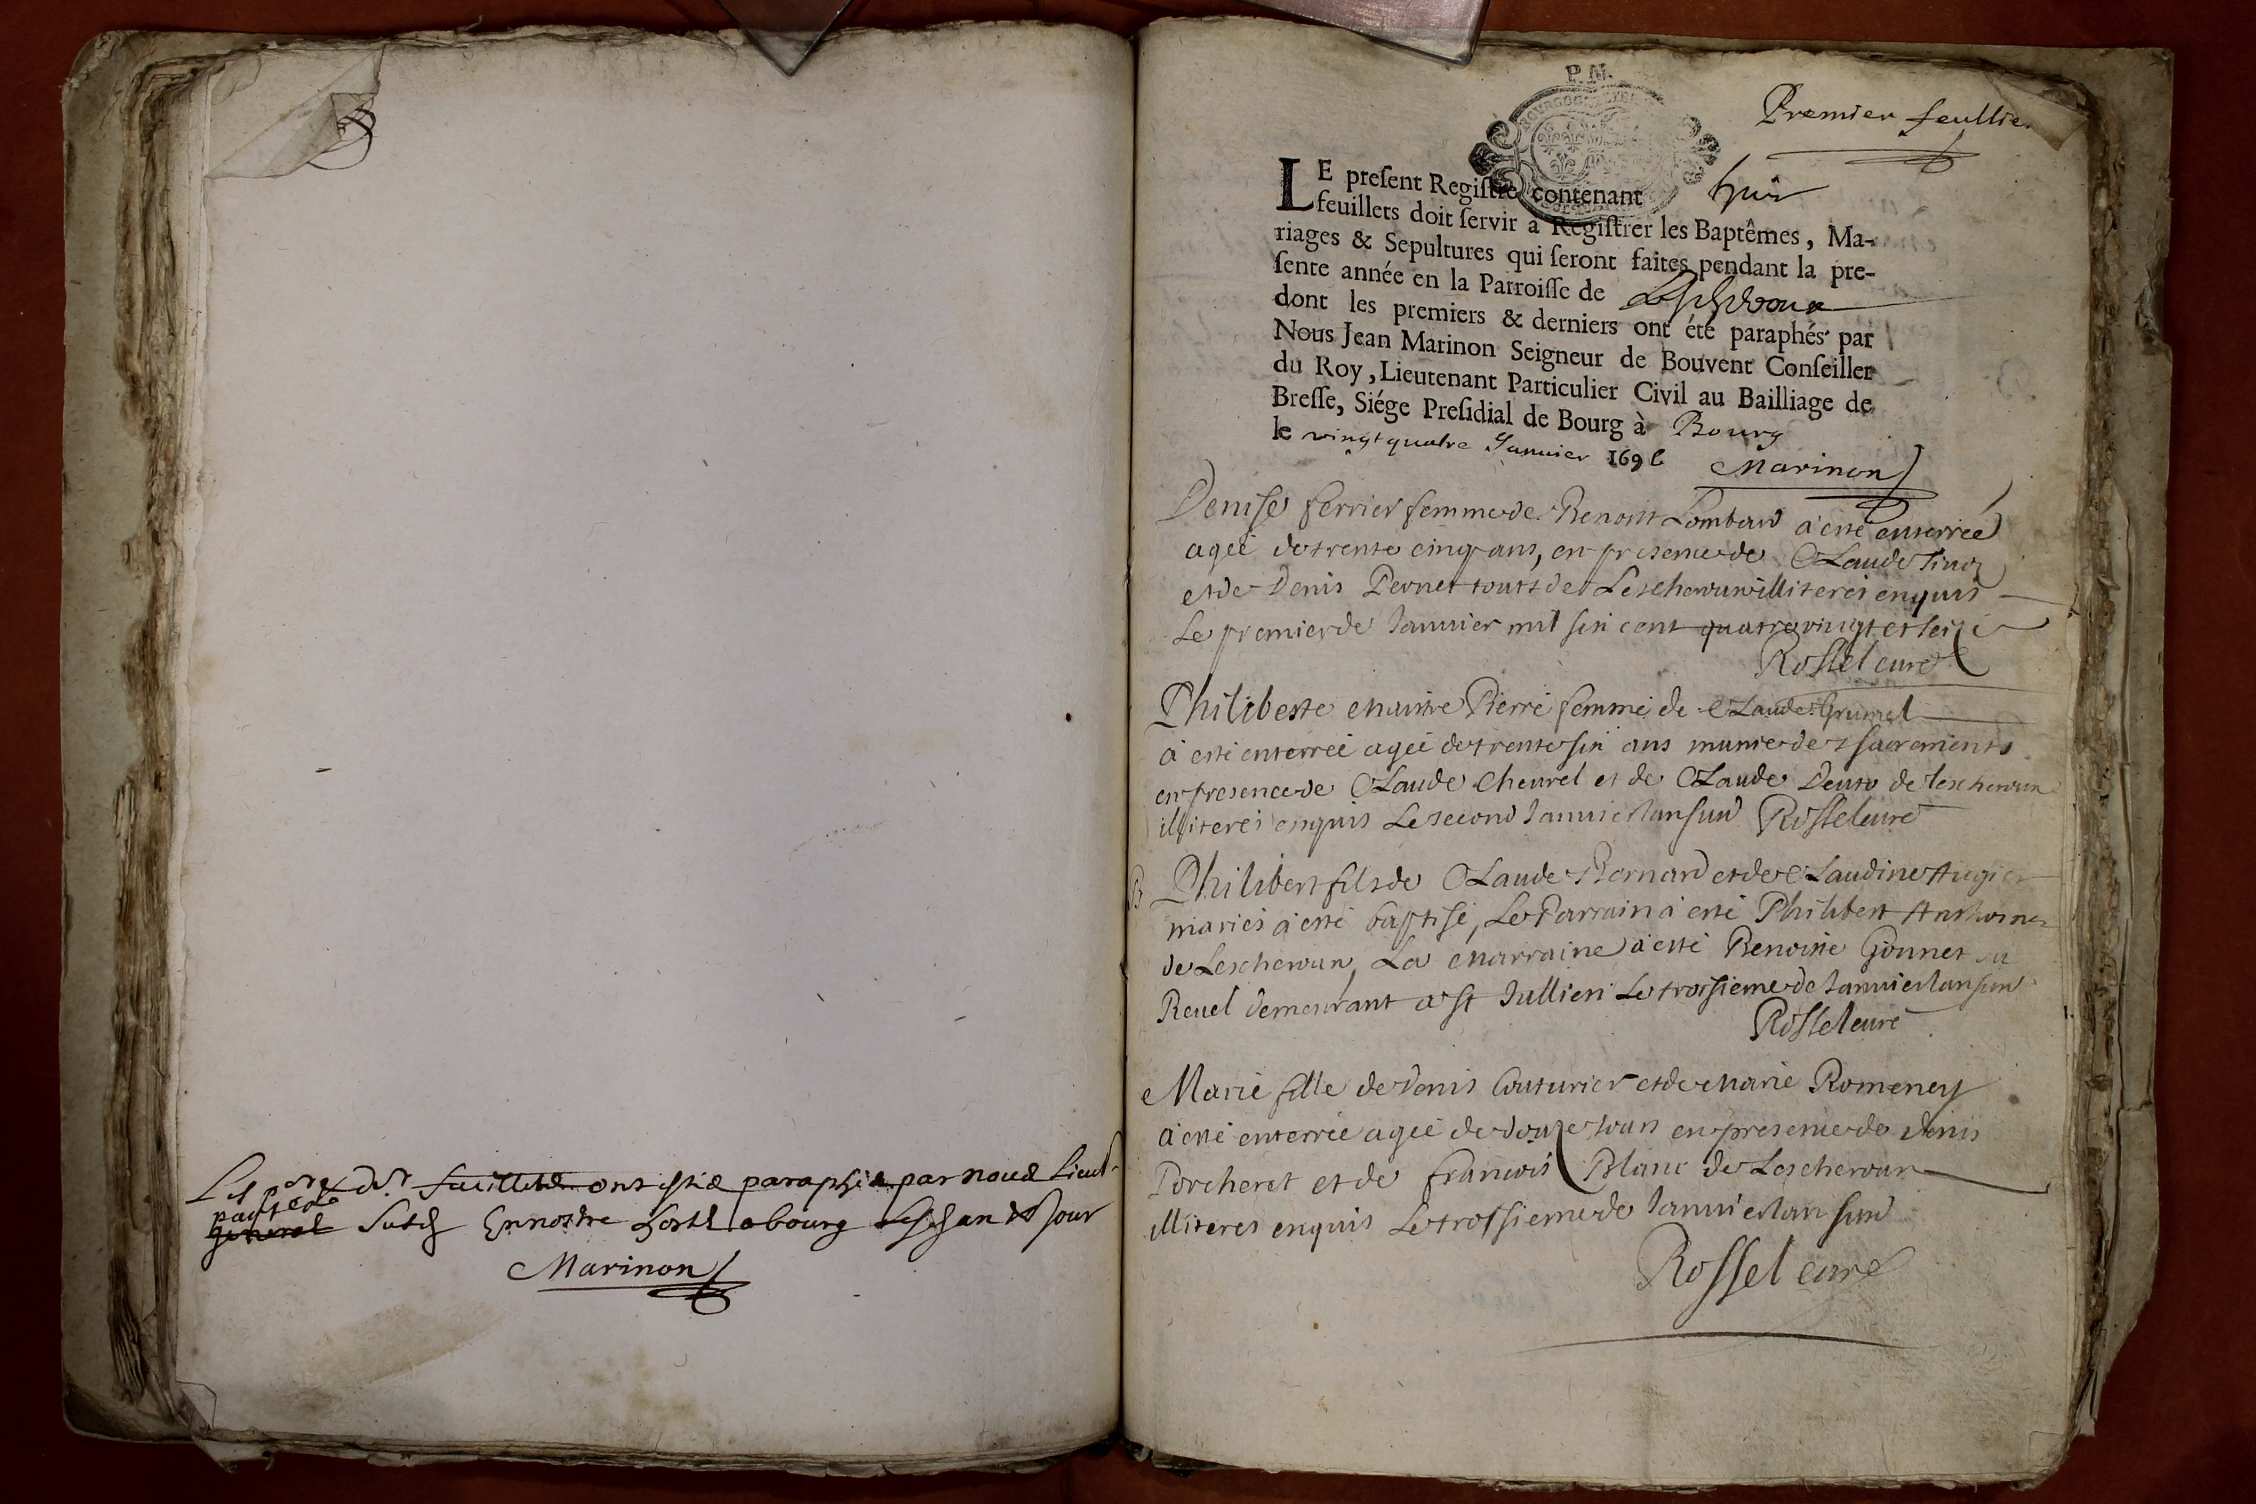 Les per et dr feuillets ont esté paraphés par nous Lieut
particulier
general susd En nostre hostel a bourg lesd an et jour
Marinon
P. M.
Premier feullie
LE preſent Regiſtre contenant huit
feuillets doit ſervir à Regiſtrer les Baptêmes, Ma-
riages & Sepultures qui ſeront faites pendant la pre-
ſente année en la Parroiſſe de Lescheroux
dont les premiers & derniers ont été paraphés par
Nous Jean Marinon Seigneur de Bouvent Conſeiller
du Roy, Lieutenant Particulier Civil au Bailliage de
Breſſe, Siége Preſidial de Bourg à Bourg
le vingt quatre Janvier 1696 Marinon
Denise ferrier femme de Benoist Lombard a esté enterrée
agée de trente cinq ans, en presence de Claude
et de Denis Pernet touts de Lescheroux illiterés enquis
Le premier de Janvier mil six cent quatrevingt et seize
Rossel curé
Philiberte Maistre Pierre femme de Claude Grumel
a esté enterrée agée de trente six ans munie des sacrements
en presence de Claude Chevrel et de Claude de lescheroux
illiterés enquis Le second Janvier lan susd Rossel curé
B Philibert fils de Claude Bernard et de Claudine Augier
mariés a esté baptisé, Le Parrain a esté Philibert Anthoine
de Lescheroux, La Marraine a esté Benoitte Gonnet
Revel demeurant a St Jullien Le troisieme de Janvier lan susd
Rossel curé
Marie fille de Denis Couturier et de Marie Romeney
a esté enterrée agée de douze Jours en presence de Denis
Porcheret et de francois Blanc de Lescheroux
illiterés enquis Le troisieme de Janvier lan susd
Rossel curé